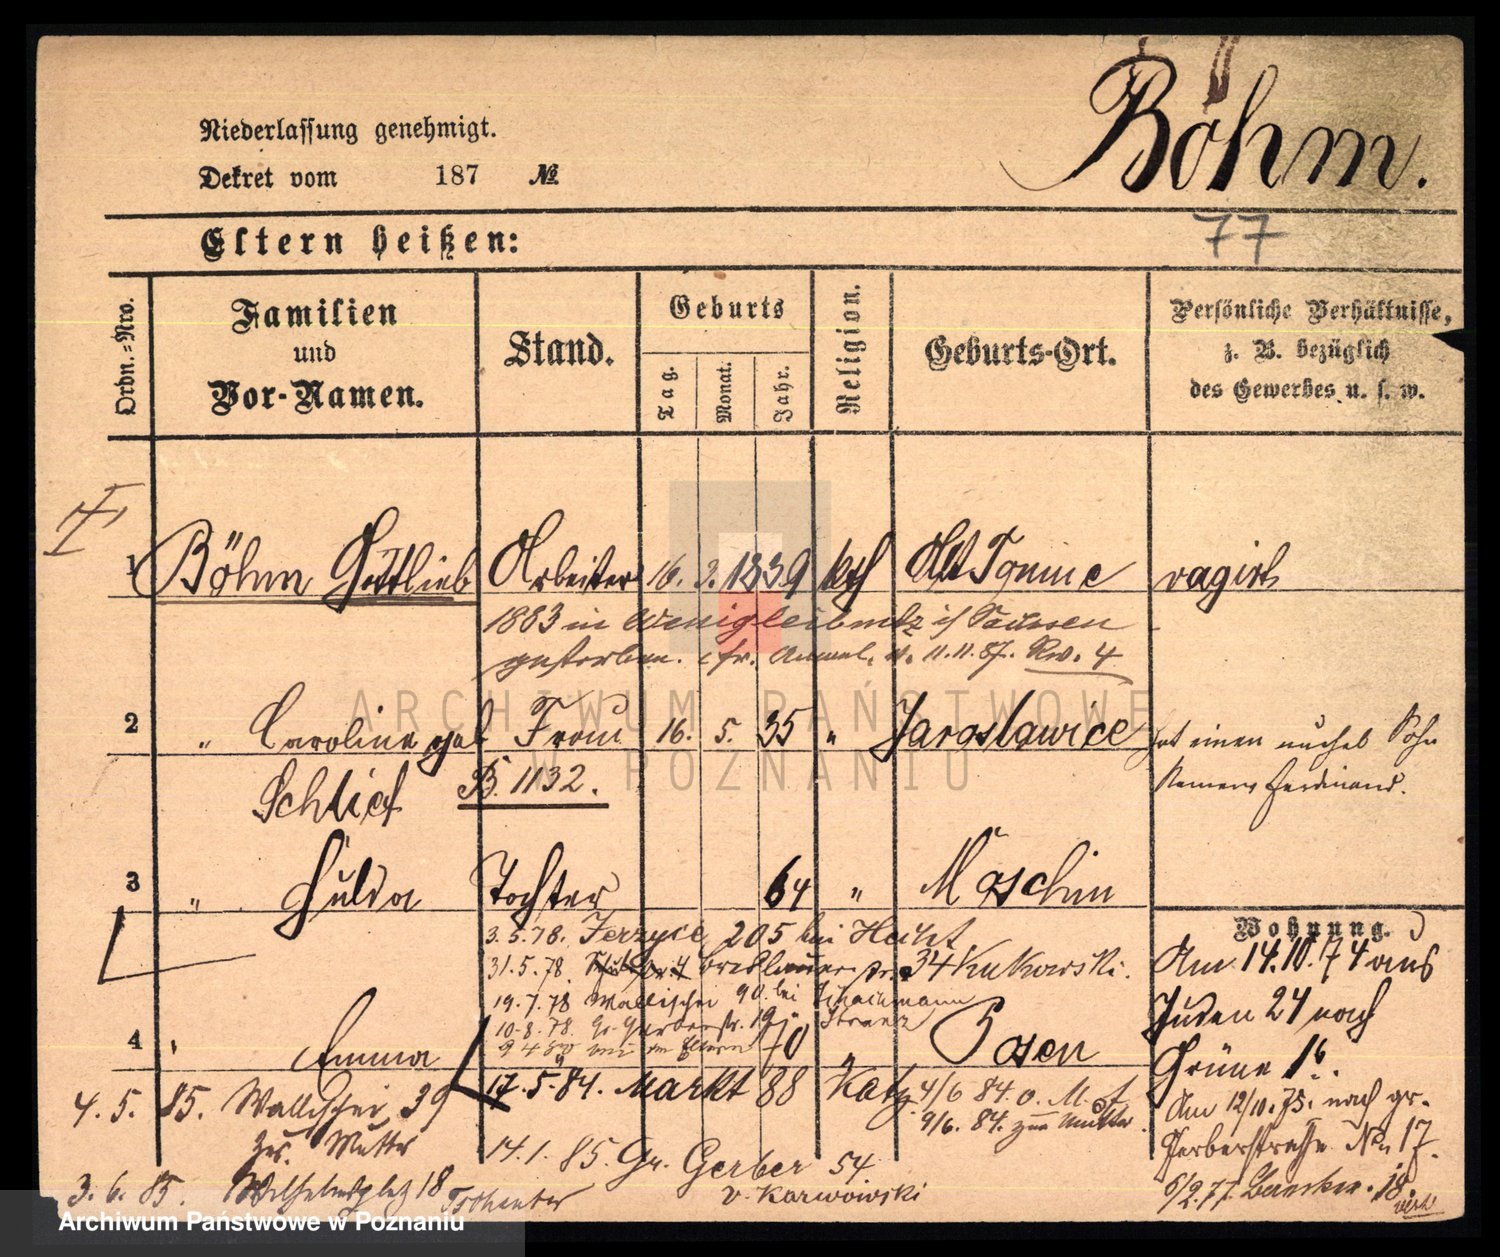 Böhm.
Niederlassung genehmigt.
Dekret vom 187 №
77
Eltern heißen:
Ordn.=Nro.
Familien und Vor-Namen.
Stand.
Geburts
Tag.
Monat.
Jahr.
Religion.
Geburts-Ort.
Persönliche Verhältnisse,
z. B. bezüglich
des Gewerbes u. s. w.
1 Böhm Gottlieb Arbeiter 16. 2. 1839 kth Alt
1883 in Sachsen
gestorben. cfr. 11.11.87. Rev. 4
2 " Caroline geb Frau 16. 5. 35 " Jaroslawice hat einen Sohn
Schlief B. 1132. Namens Ferdinand.
3 " Hulda Tochter 64 " Moschin
Wohnung.
3.5.78. Jerzyce 205 bei Hecht
31.5.78 Breslauerstr. 34 Kukowski.
19.7.78 Wallischei 90. bei
10.8.78. Gr. Gerberstr. 19
4 " Emma 70 " Posen
17.5.84. Markt 88 Katz 4/6 84. o. M.
9/6. 84. zur Mutter.
Am 14.10.74 aus
Juden 24 nach
Grüne 1b.
Am 12/10.75. nach gr.
Gerberstrasse No. 17.
6/2.77. 18.
4. 5. 85. Wallischei 39
zur Mutter
14.1. 85. Gr. Gerber 54
v. Karwowski
3. 6. 85. Wilhelmsplatz 18
ARCHIWUM PAŃSTWOWE
W POZNANIU
Archiwum Państwowe w Poznaniu